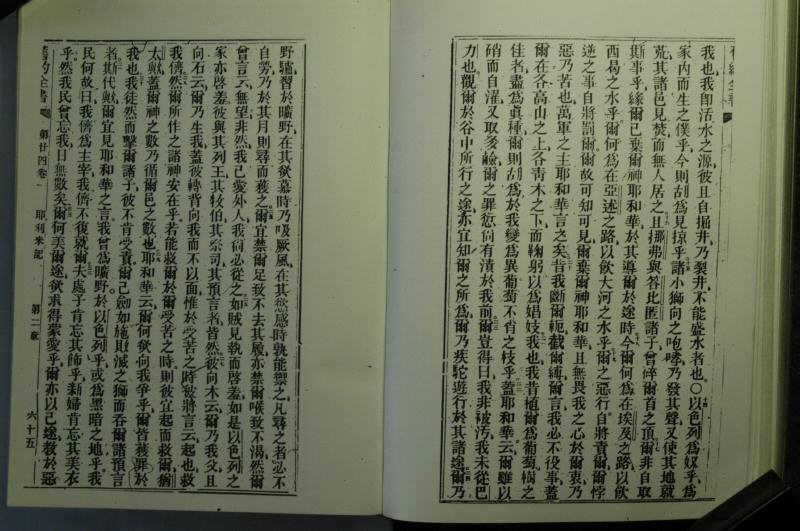 我也我即活水之源彼且自掘井乃裂井不能盛水者也○以色列爲奴乎爲
家內而生之僕乎今則胡爲見掠乎諸小獅向之咆哮乃發其聲又使其地就
荒其諸邑見焚而無人居之且挪弗與答比匿諸子曾碎爾首之頂爾非自取
斯事乎緣爾已棄爾神耶和華於其導爾於途時今爾何爲在埃及之路以飲
西曷之水乎爾何爲在亞述之路以飲大河之水乎爾之惡行自將責爾爾悖
逆之事自將罰爾爾故可知可見爾棄爾神耶和華且無畏我之心於爾衷乃
惡乃苦也萬軍之主耶和華言之矣昔我斷爾軛截爾縛爾言我必不役事蓋
爾在各高山之上各靑木之下而鞠躬以爲娼妓我也我昔植爾爲葡萄樹之
佳者盡爲眞種爾則胡爲於我變爲異葡萄不肖之枝乎蓋耶和華云爾雖以
硝而自濯又取多鹼爾之罪愆尙有漬於我前爾豈得曰我非被汚我未從巴
力也觀爾於谷中所行之途亦宜知爾之所爲爾乃疾駝遊行於其諸途爾乃
野驢習於曠野在其欲慕時乃吸厥風在其慾感時孰能禦之凡尋之者必不
自勞乃於其月則尋而獲之爾宜禁爾足致不去其履亦禁爾喉致不渴然爾
曾言云無望非然我已愛外人我尙必從之如賊見執而啓羞如是以色列之
家亦啓羞彼與其列王其牧伯其祭司其預言者皆然彼向木云爾乃我父且
向石云爾乃生我蓋彼轉背向我而不以面惟於受苦之時彼將言云起也救
我儕然爾所作之諸神安在乎若能救爾於爾受苦之時則彼宜起而救爾猶
太歟蓋爾神之數乃循爾邑之數也耶和華云爾何欲向我爭乎爾皆獲罪於
我也我徒然而擊爾諸子彼不肯受責爾己劍如施敗滅之獅而呑爾諸預言
者斯代歟爾宜見耶和華之言我曾爲曠野於以色列乎或爲黑暗之地乎我
民何故曰我儕爲主宰我儕不復就爾夫處子肯忘其飾乎新婦肯忘其美衣
乎然我民曾忘我日無數矣爾何美爾途欲求得蒙愛乎爾亦以己途敎於惡
舊約全書 第廿四卷 耶利米記 第二章 六十五